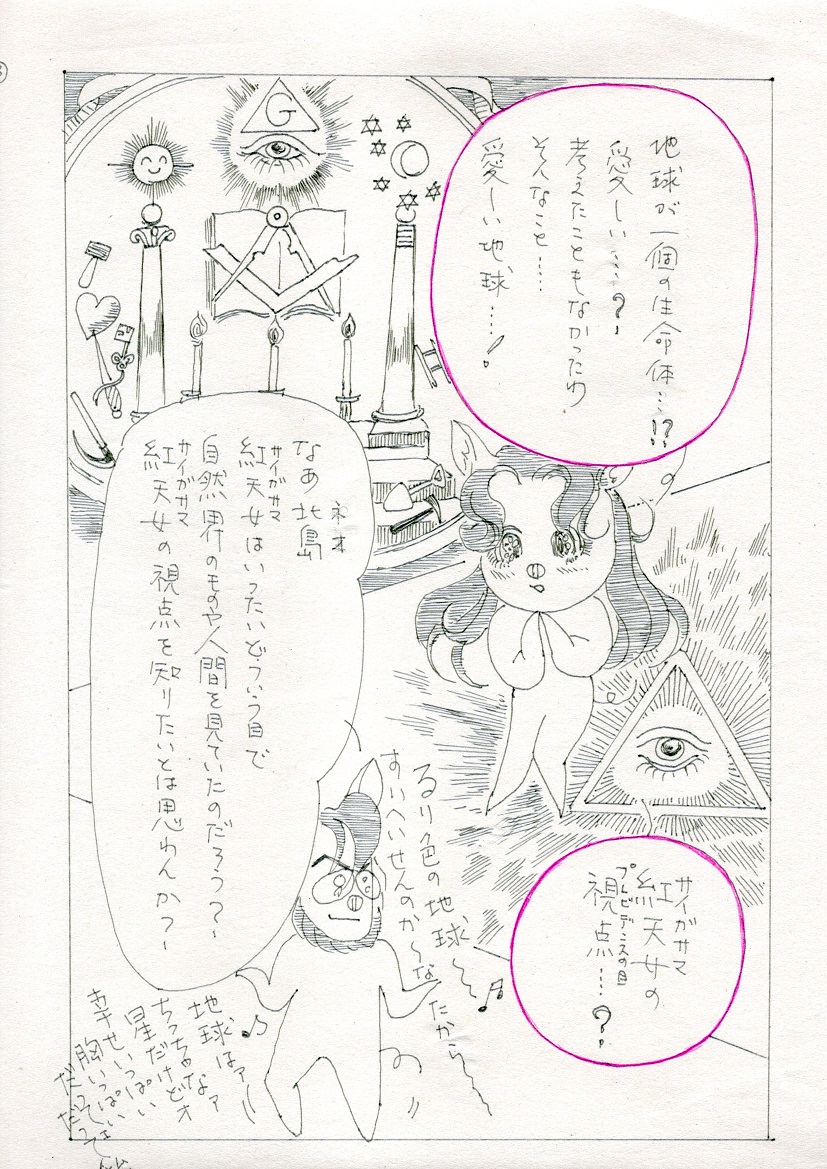 地球が一個の生命体…!?
愛しい…?
考えたこともなかったわ
そんなこと……
愛しい地球…!
G
ネオ
なあ北島
サイガサマ
紅天女はいったいどういう目で
自然界のものや人間を見ていたのだろう?
サイガサマ
紅天女の視点を知りたいとは思わんか?
サイガサマ
紅天女の
プロビデンスの目
視点…?
るり色の地球〜
すいへいせんのか〜なたから
地球はァ
ちっちゃなァ
星だけどォ
幸せいっぱい
胸いっぱい
だって
だって